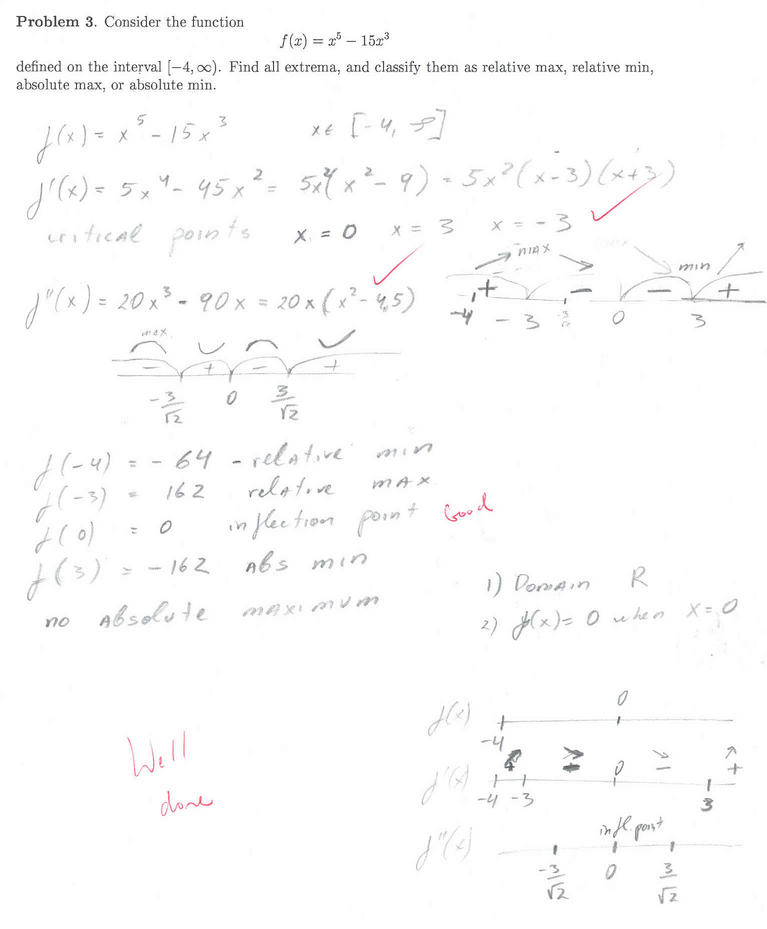 Problem 3. Consider the function
f(x) = x⁵ − 15x³
defined on the interval [−4, ∞). Find all extrema, and classify them as relative max, relative min,
absolute max, or absolute min.
f(x) = x⁵ - 15x³ x ∈ [-4, ∞]
f'(x) = 5x⁴ - 45x² = 5x²(x² - 9) = 5x²(x-3)(x+3)
critical points x = 0 x = 3 x = -3
max min
+ - - +
-4 -3 0 3
f''(x) = 20x³ - 90x = 20x(x² - 4,5)
max
- + - +
-3/√2 0 3/√2
f(-4) = -64 - relative min
f(-3) = 162 relative max
f(0) = 0 inflection point Good
f(3) = -162 Abs min
no Absolute maximum
1) Domain R
2) f(x) = 0 when x = 0
Well
done
f(x) 0
-4
f'(x) 0 - +
-4 -3 3
f''(x) infl. point
-3/√2 0 3/√2